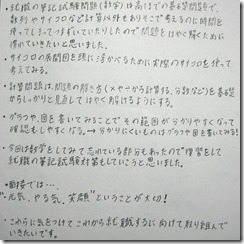 ・就職の筆記試験問題(数字)は高校の基礎問題で、
数列やサイコロなど計算以外もありそこで考えるのに時間と
使ってしまってつまずいていたりしたので問題をはやく解くために
慣れていきたいと思いました。
・サイコロの展開図を頭に浮かべるために実際のサイコロを使って
考えてみる。
・計算問題は、問題の解き方(×や÷から計算する、分数など)を基礎
からしっかりと見直してはやく解けるようにする。
・グラフや、図を書いてみることでその範囲が分かりやすくなって
確認もしやすくなる。→分かりにくいものはグラフや図を書いてみる!
今回は数学をしてみて忘れている部分もあったので復習をして
就職の筆記試験対策もしていこうと思いました。
・面接では…
"元気、やる気、笑顔"ということが大切!
・これらに気をつけてこれから就職するに向けて取り組んで
いきたいです。